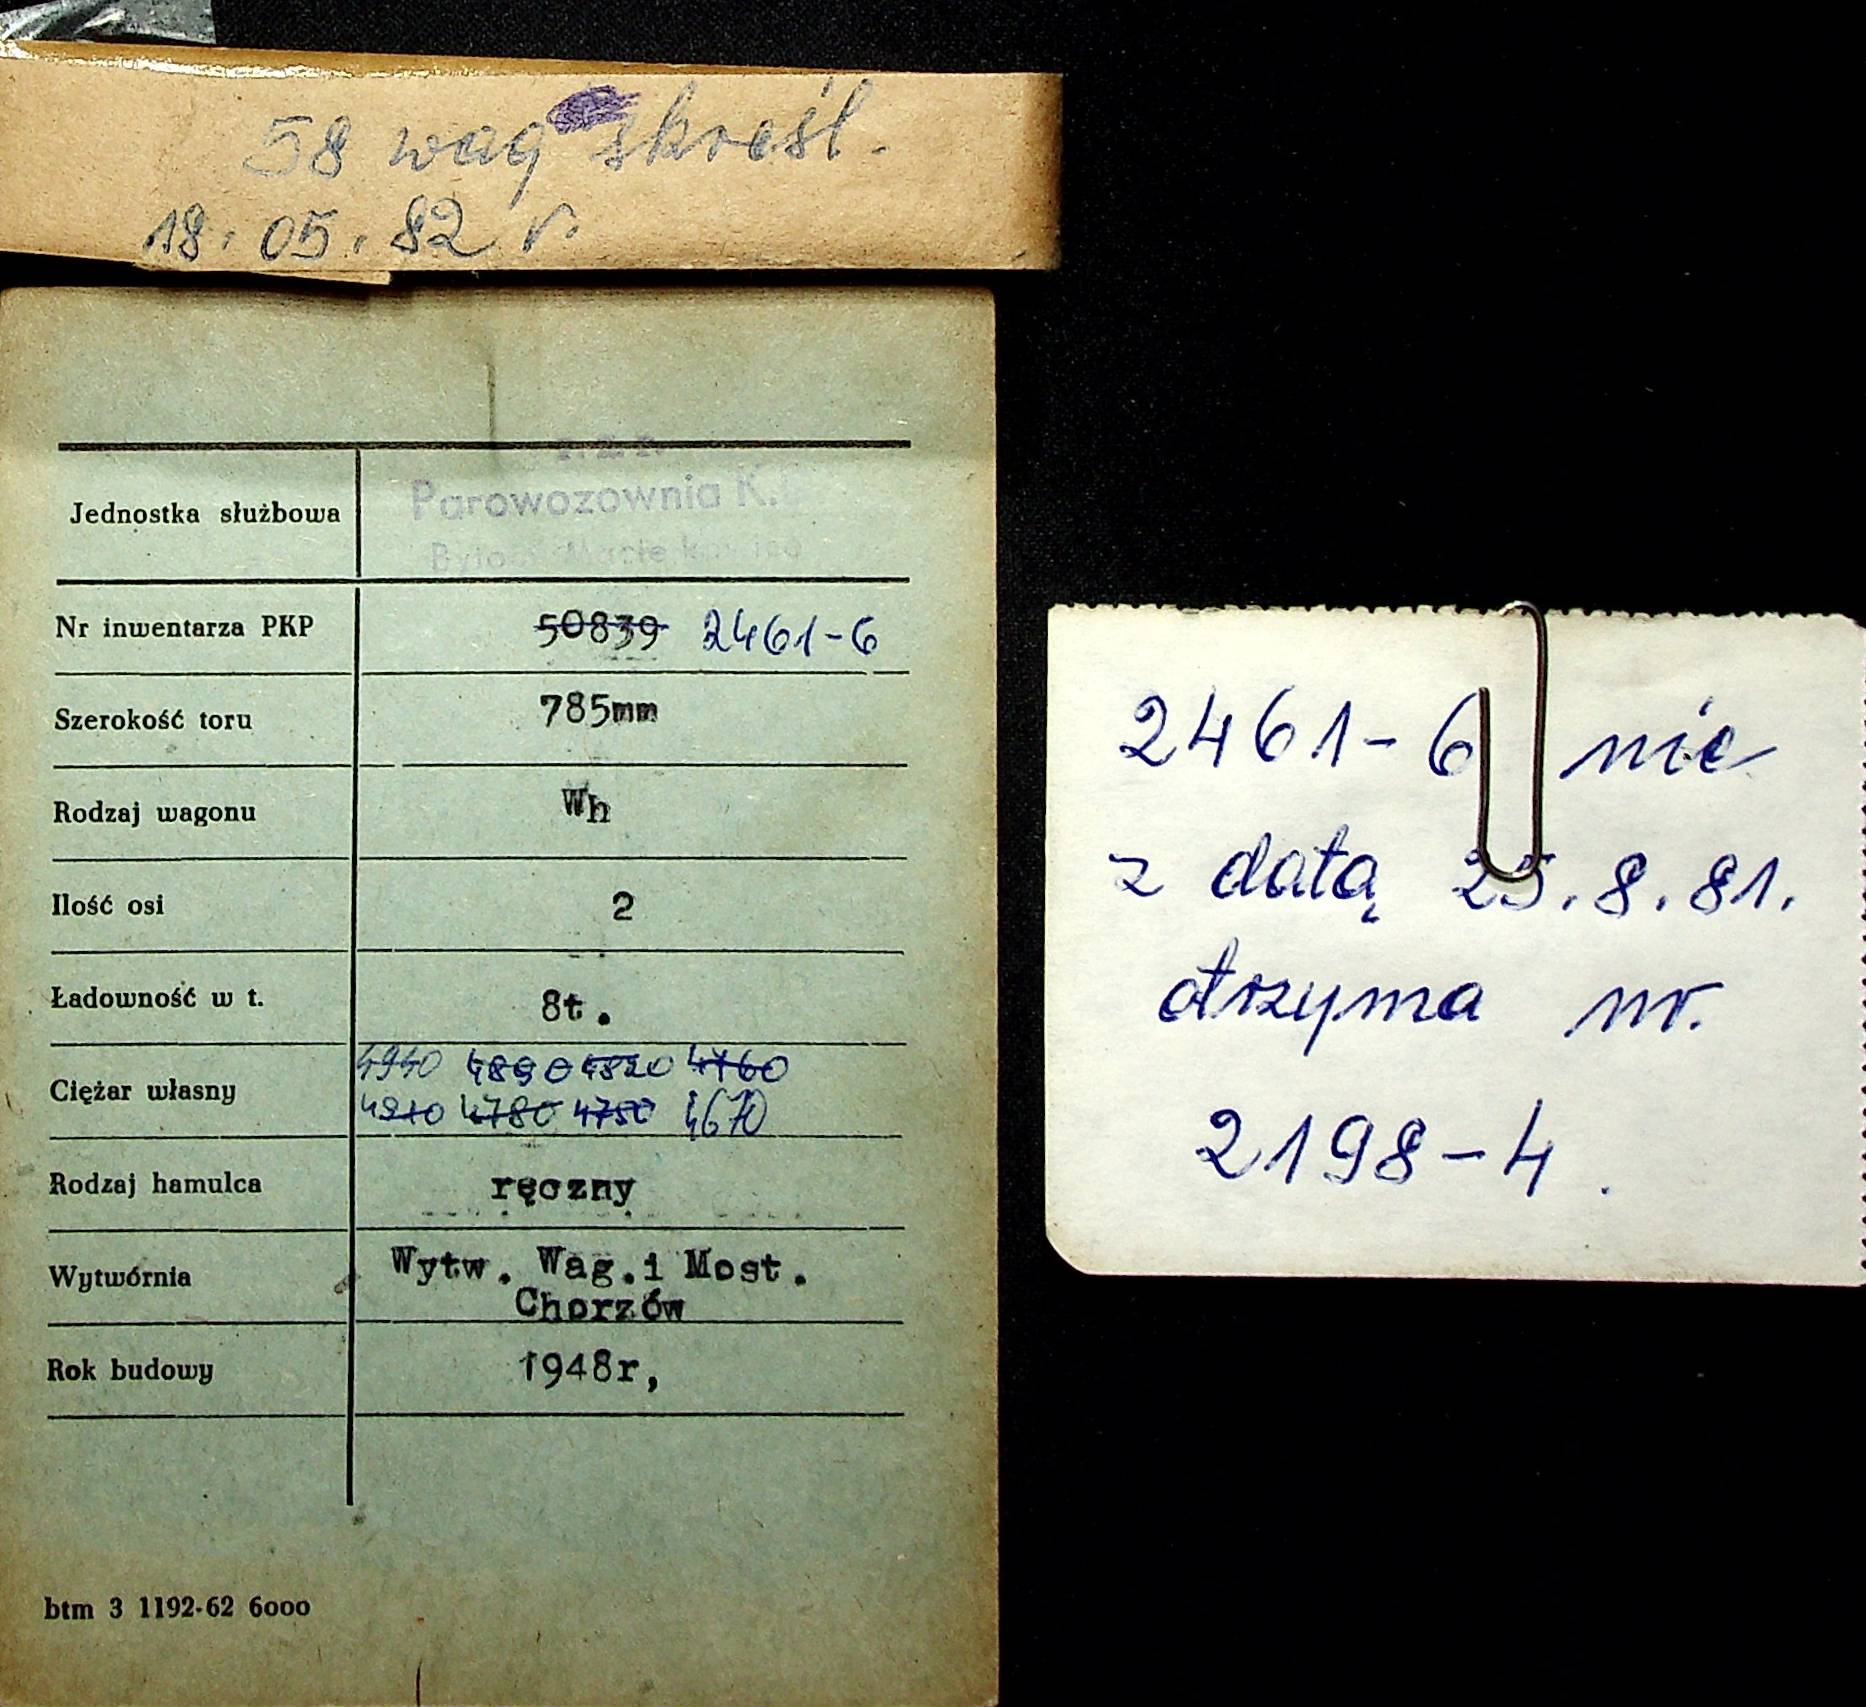 58 wag skreśl.
18.05.82 r.
Jednostka służbowa
Parowozownia K.
Nr inwentarza PKP 50839 2461-6
Szerokość toru 785mm
Rodzaj wagonu Wh
Ilość osi 2
Ładowność w t. 8t.
4940 4890 4820 4760
Ciężar własny
4910 4780 4750 4670
Rodzaj hamulca ręczny
Wytwórnia Wytw. Wag.i Most.
Chorzów
Rok budowy 1948r,
btm 3 1192-62 6000
2461-6 nie
z datą 25.8.81.
otrzyma nr.
2198-4.